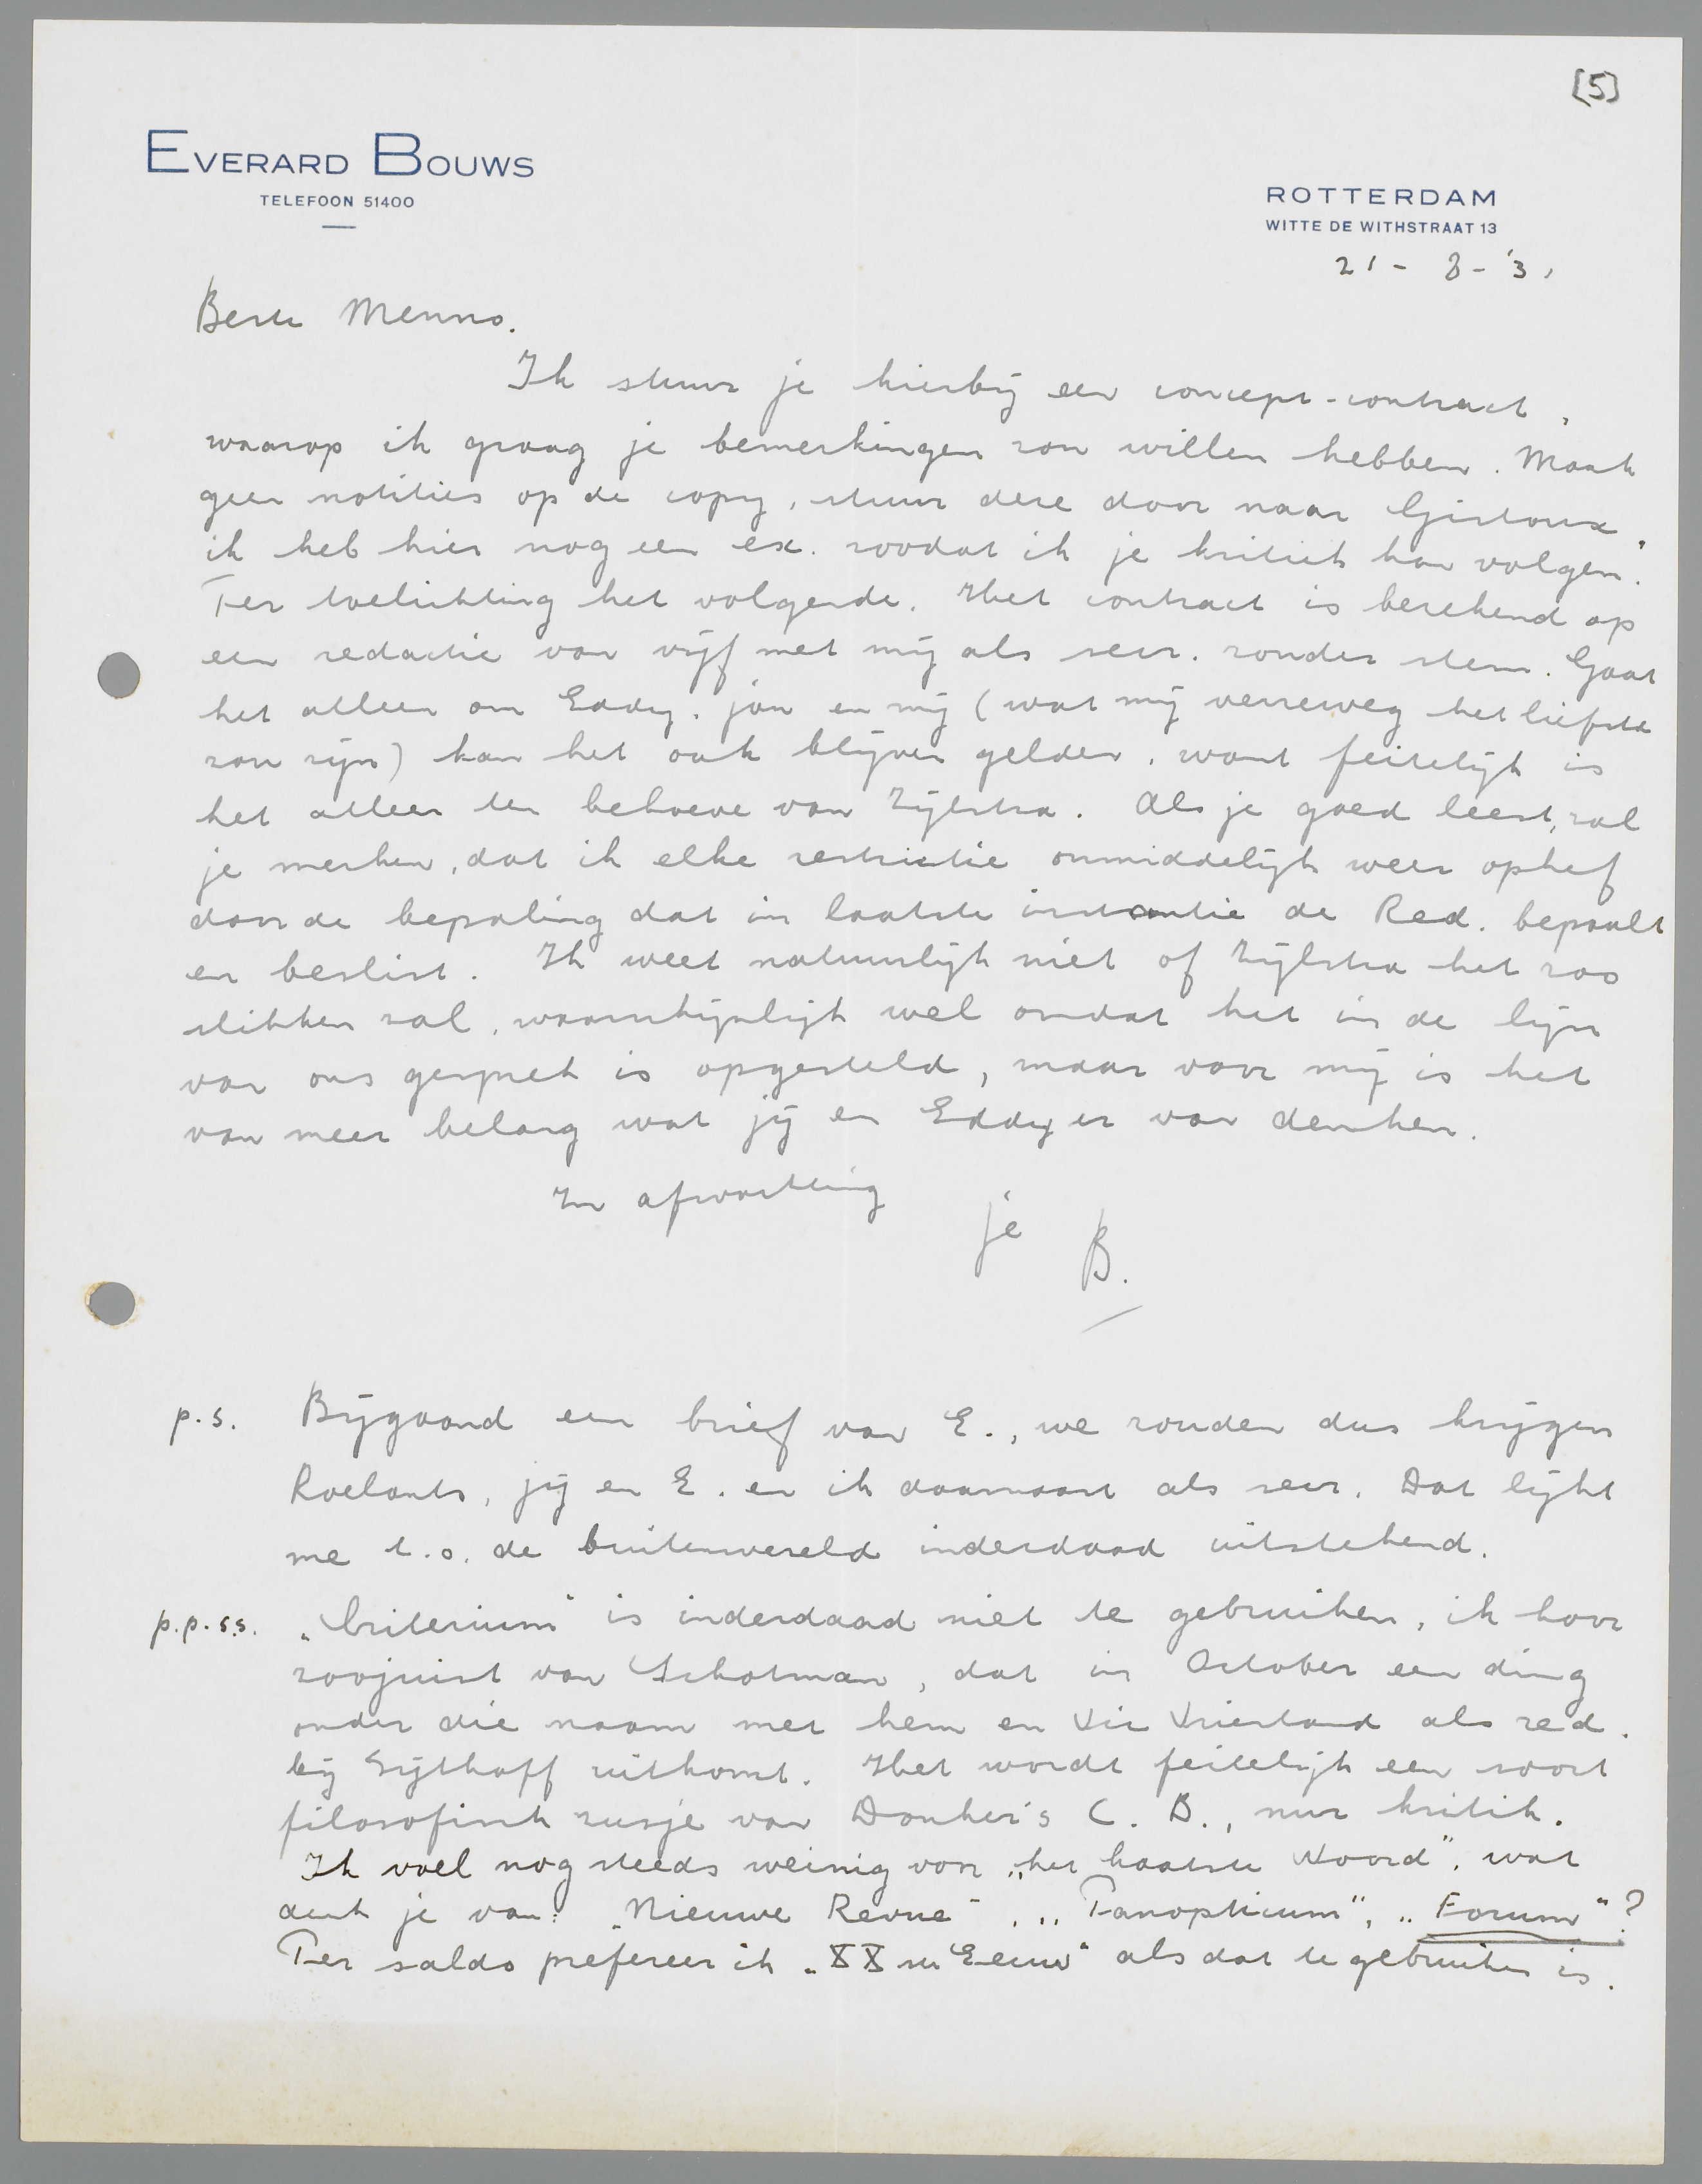 [5]
EVERARD BOUWS
TELEFOON 51400
ROTTERDAM
WITTE DE WITHSTRAAT 13
21 - 8 - '31
Beste Menno.
Ik stuur je hierbij een concept-contract,
waarop ik graag je bemerkingen zou willen hebben. Maak
geen notities op de copy, stuur deze door naar Gistoux,
ik heb hier nog een ex. zoodat ik je kritiek kan volgen.
Ter toelichting het volgende. Het contract is berekend op
een redactie van vijf met mij als secr. zonder stem. Gaat
het alleen om Eddy, jou en mij (wat mij verreweg het liefste
zou zijn) kan het ook blijven gelden, want feitelijk is
het alleen ten behoeve van Zijlstra. Als je goed leest, zal
je merken, dat ik elke restrictie onmiddelijk weer ophef
door de bepaling dat in laatste instantie de Red. bepaalt
en beslist. Ik weet natuurlijk niet of Zijlstra het zoo
slikken zal, waarschijnlijk wel omdat het in de lijn
van ons gesprek is opgesteld, maar voor mij is het
van meer belang wat jij en Eddy er van denken.
In afwachting
je B.
p.s. Bijgaand een brief van E., we zouden dus krijgen
Roelants, jij en E. en ik daarnaast als secr. Dat lijkt
me t.o. de buitenwereld inderdaad uitstekend.
p.p.s.s. „Criterium" is inderdaad niet te gebruiken, ik hoor
zoojuist van Schotman, dat in October een ding
onder die naam met hem en Vic Vriesland als red.
bij Sijthoff uitkomt. Het wordt feitelijk een soort
filosofisch zusje van Donker's C. B., nur kritik.
Ik voel nog steeds weinig voor „het laatste Woord", wat
denk je van: „Nieuwe Revue", „Panopticum", „Forum"?
Per saldo prefereer ik „XXste Eeuw" als dat te gebruiken is.